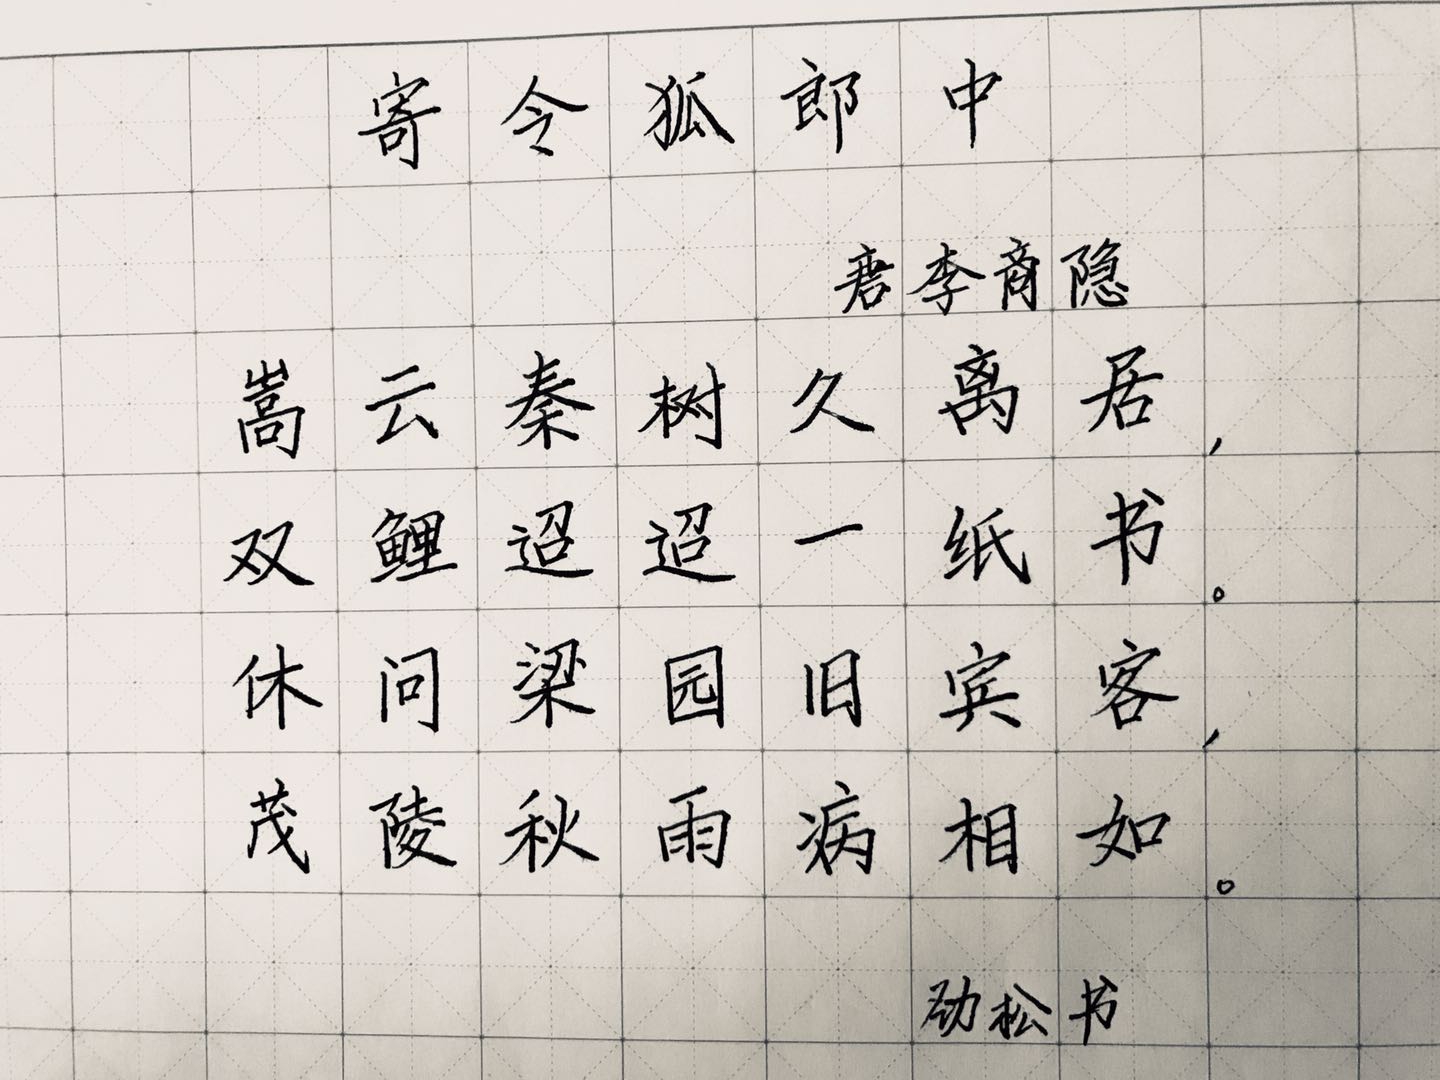 寄令狐郎中
唐李商隐
嵩云秦树久离居，
双鲤迢迢一纸书。
休问梁园旧宾客，
茂陵秋雨病相如。
劲松书